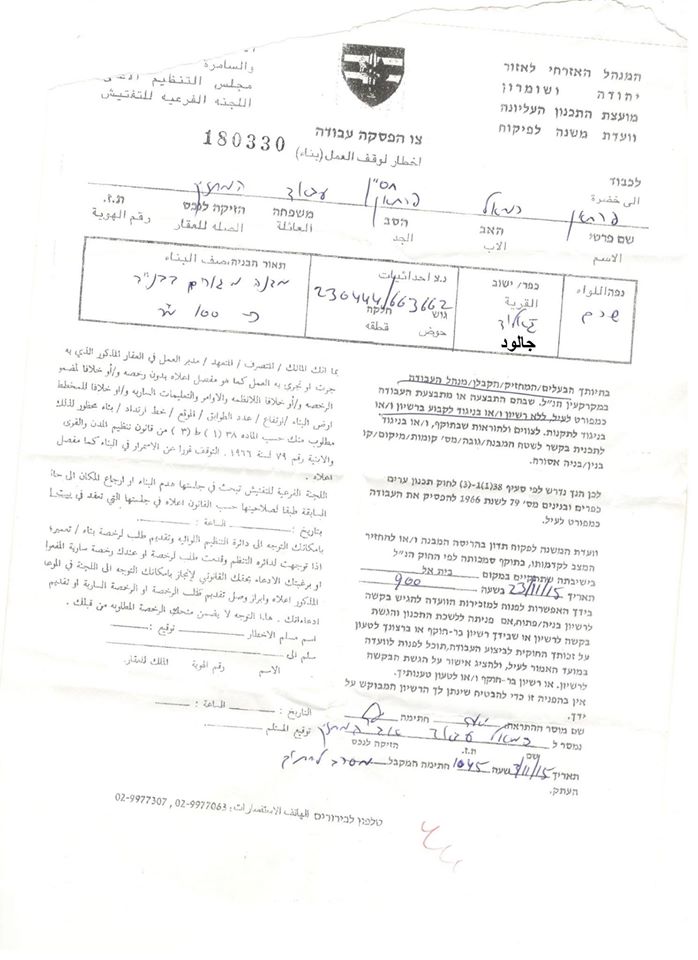 המנהל האזרחי לאזור
יהודה ושומרון
מועצת התכנון העליונה
וועדת משנה לפיקוח
والسامرة
مجلس التنظيم
اللجنه الفرعيه للتفتيش
צו הפסקה עבודה
180330
اخطار لوقف العمل (بناء)
לכבוד
الى حضرة
שם פרטי האב הסב משפחה הזיקה לנכס ת.ז.
الاسم الاب الجد العائلة الصله للعقار رقم الهوية
נפה/اللواء
שכם
כפר/ ישוב
القرية
جالود
נ.צ احداثيات
230444/663662
גוש חלקה
حوض قطقه
תאור הבניה/وصف البناء
מבנה מגורים
כ- 100 מ"ר
בהיותך הבעלים/המחזיק/הקבלן/מנהל העבודה
במקרקעין הנ"ל, שבהם התבצעה או מתבצעת העבודה
כמפורט לעיל, ללא רשיון ו/או בניגוד לקבוע ברשיון ו/או
בניגוד לתקנות. לצווים ולהוראות שבתוקף, ו/או בניגוד
לתכנית בקשר לשטח המבנה/גובה/מס' קומות/מיקום/קו
בנין/בניה אסורה.
לכן הנך נדרש לפי סעיף 38(1)-(3) לחוק תכנון ערים
כפרים ובנינים מס' 79 לשנת 1966 להפסיק את העבודה
כמפורט לעיל.
וועדת המשנה לפקוח תדון בהריסה המבנה ו/או להחזיר
המצב לקדמותו, בתוקף סמכותה לפי החוק הנ"ל
בישיבתה שתתקיים במקום בית אל
תאריך 23/11/15 בשעה 900
בידך האפשרות לפנות למזכירות הוועדה להגיש בקשה
לרשיון בניה/פתוח, אם פניתה ללשכת התכנון והגשת
בקשה לרשיון או שבידך רשיון בר-תוקף או ברצונך לטעון
על זכותך החוקית לביצוע העבודה, תוכל לפנות לוועדה
במועד האמור לעיל, ולהציג אישור על הגשת הבקשה
לרשיון, או רשיון בר-תוקף ו/או לטעון טענותיך.
אין בהפניה זו כדי להבטיח שינתן לך הרשיון המבוקש על
ידך.
שם מוסר ההתראה חתימה
נמסר ל
שם ת.ז. הזיקה לנכס
תאריך 3/11/15 שעה 1045 חתימה המקבל
העתק.
بما انك المالك / المتصرف / المتعهد / مدير العمل في العقار المذكور الذي به
جرت او تجري به العمل كما هو مفصل اعلاه بدون رخصه و/أو خلافا لمضمو
الرخصه و/أو خلافا للانظمه والاوامر والتعليمات الساريه و/او خلافا للمخطط
ارض البناء /ارتفاع / عدد الطوابق / الموقع / خط ارتداد / بناء محظور لذلك
مطلوب منك حسب الماده ٣٨ (١) ط (٣) من قانون تنظيم المدن والقرى
والابنية رقم ٧٩ لسنة ١٩٦٦ . التوقف فورا عن الاستمرار في البناء كما مفصل
اعلاه .
اللجنة الفرعية للتفتيش تبحث في جلستها هدم البناء او ارجاع المكان الى حالة
السابقة طبقا لصلاحيتها حسب القانون اعلاه في جلستها التي تنعقد في
بتاريخ - الساعة :
بامكانك التوجه الى دائرة التنظيم اللوائيه وتقديم طلب لرخصة بناء / تعمير؛
اذا توجهت لدائرة التنظيم وقدمت طلب لرخصة او عندك رخصة سارية المفعول
او برغبتك الادعاء بحقك القانوني لانجاز بامكانك التوجه الى اللجنة في الموعد
المذكور اعلاه وابراز وصل تقديم طلب الرخصة او الرخصة السارية او تقديم
ادعاءاتك . هذا التوجه لا يضمن منحك الرخصة المطلوبه من قبلك .
اسم مسلم الاخطار توقيع :
سلم الى
الاسم رقم الهوية المالك للعقار.
التاريخ : الساعة :
توقيع المستلم
טלפון לבירורים الهاتف الاستفسارات: 02-9977063 , 02-9977307